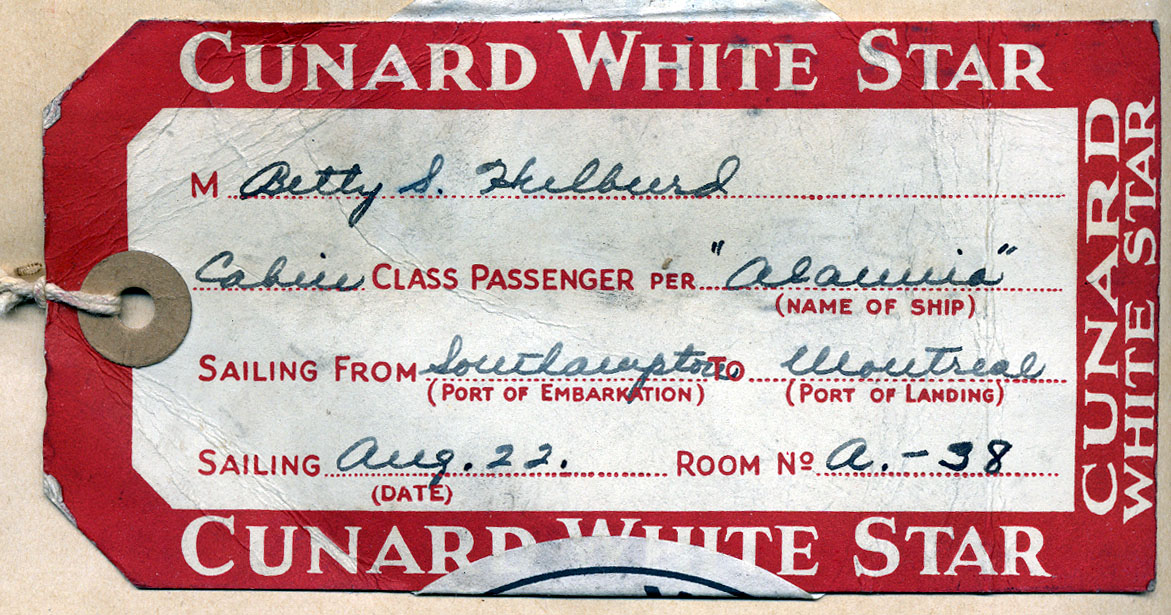 CUNARD WHITE STAR
M Betty S. Hulburd
Cabin CLASS PASSENGER PER "Alaunia"
(NAME OF SHIP)
SAILING FROM Southampton TO Montreal
(PORT OF EMBARKATION) (PORT OF LANDING)
SAILING Aug. 22. ROOM Nº A.-38
(DATE)
CUNARD WHITE STAR
CUNARD
WHITE STAR